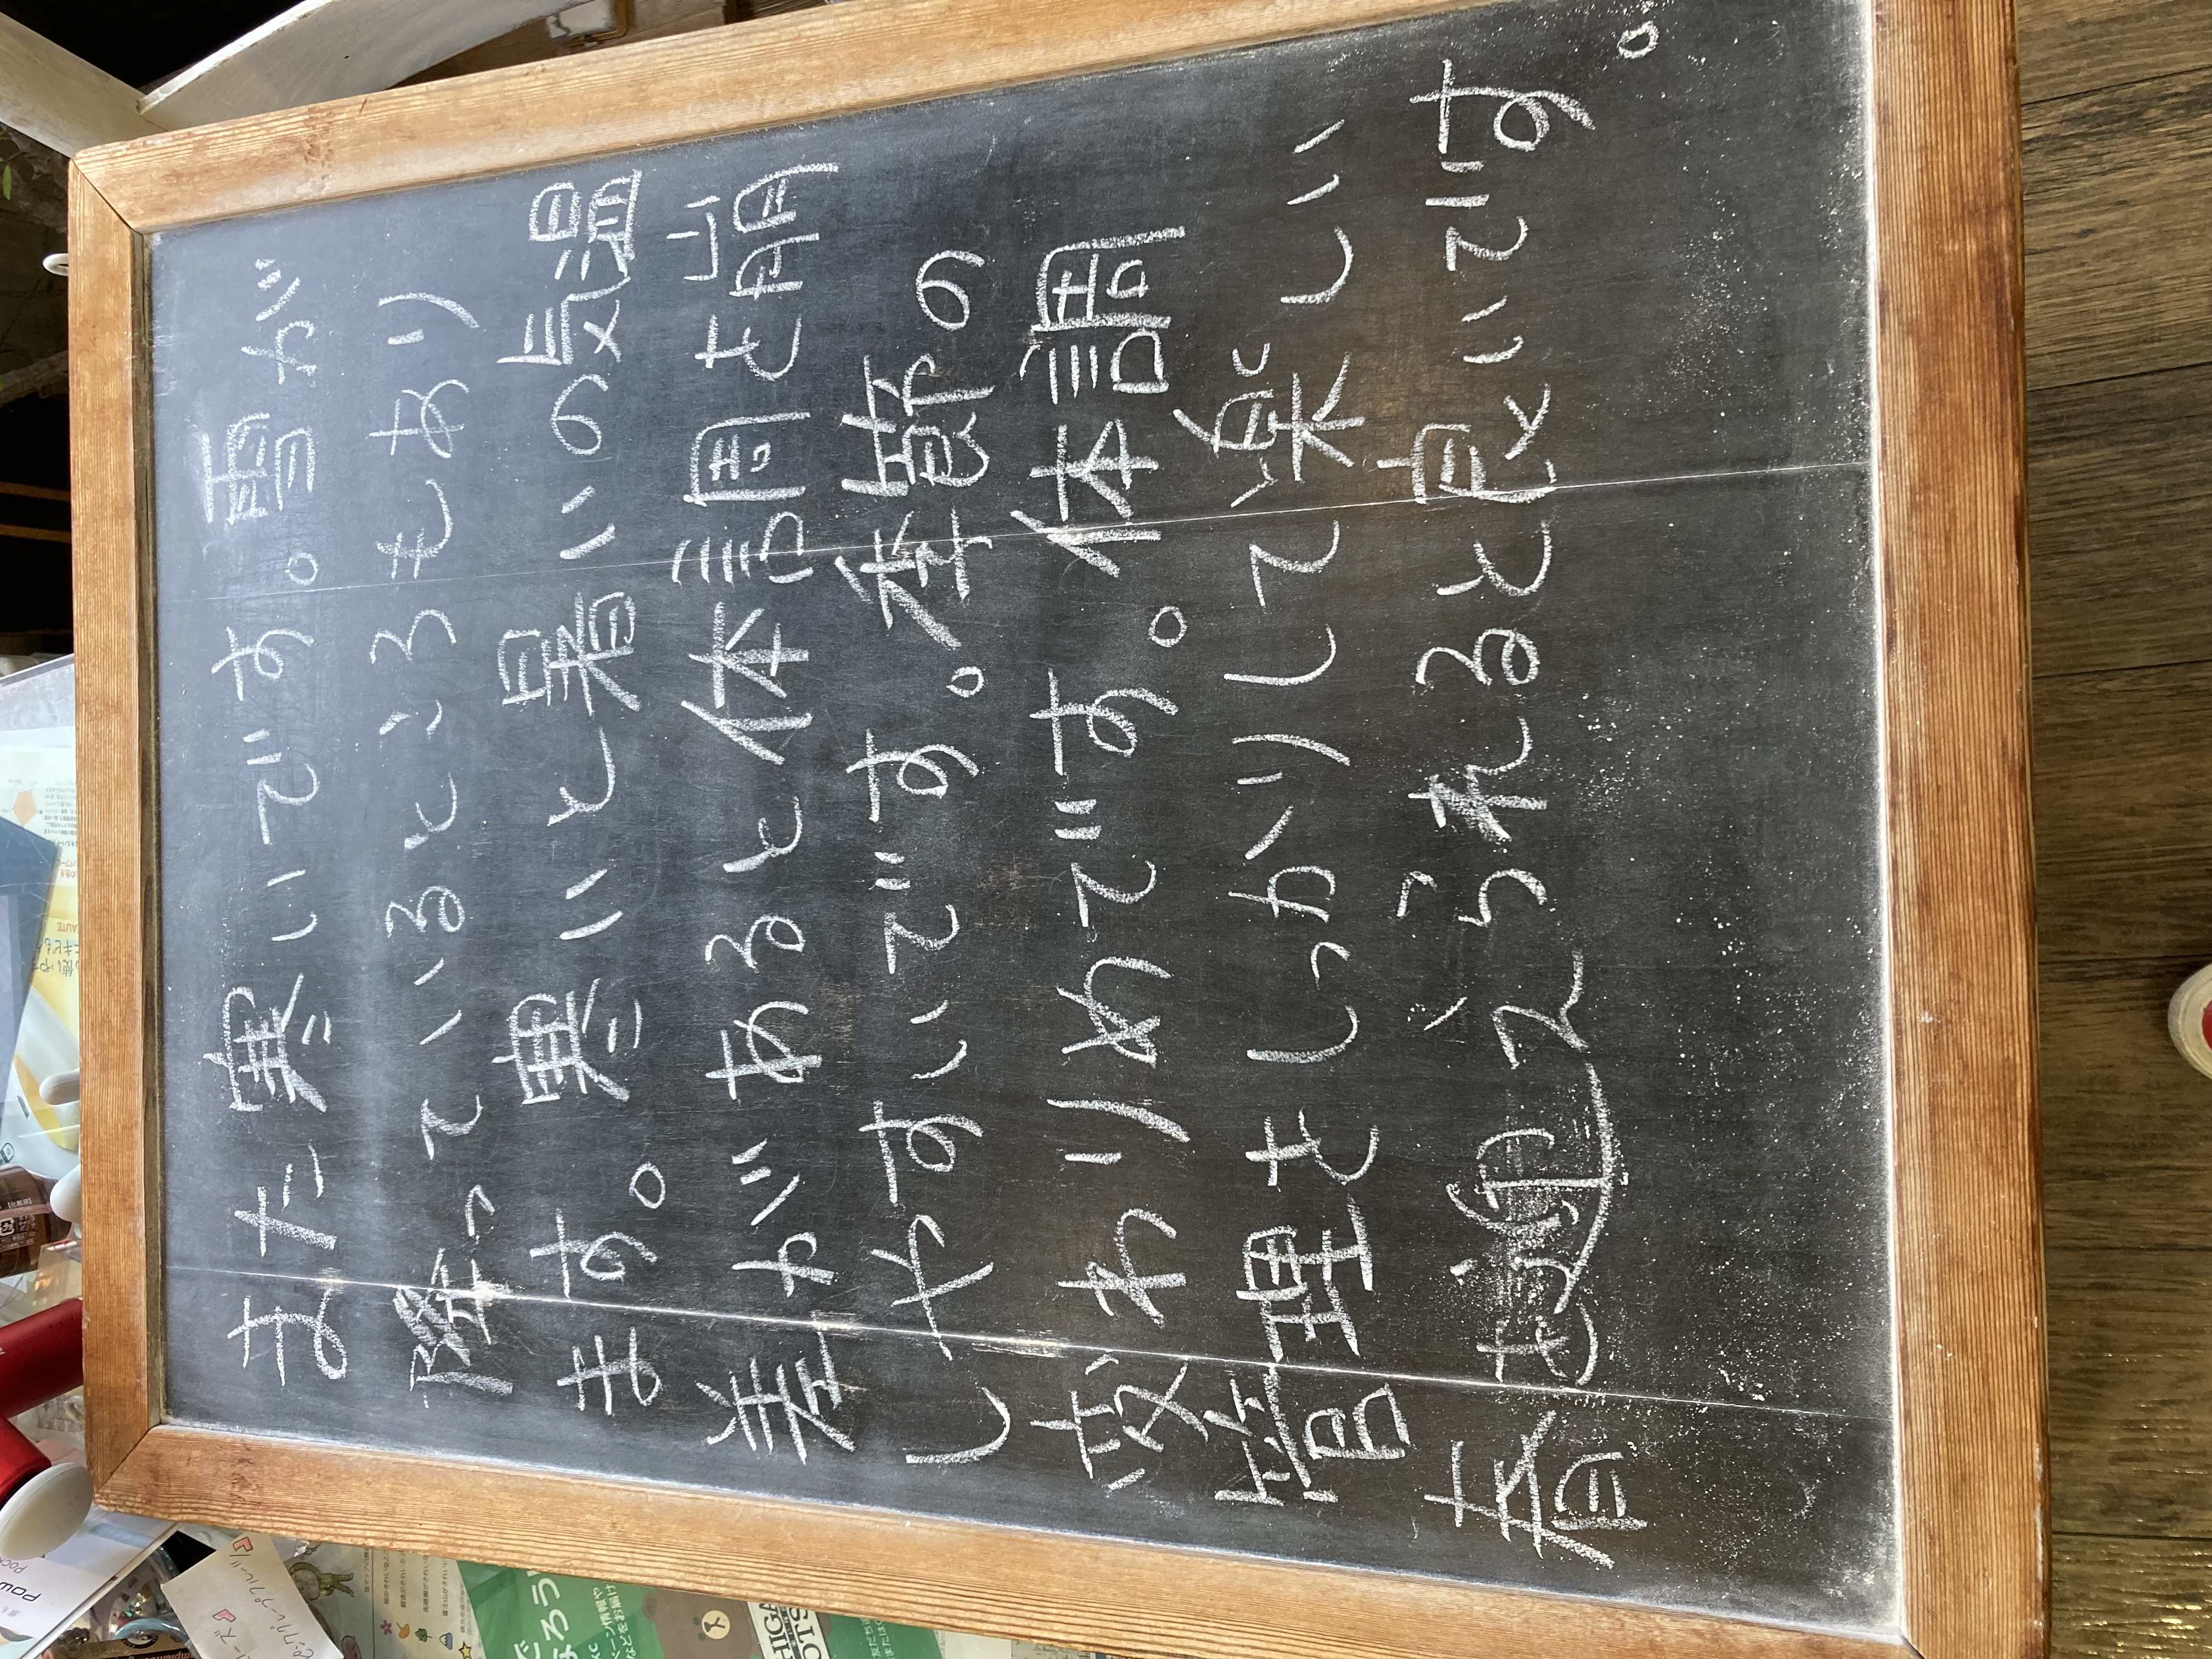 また寒いです。雪が
降っているところもあり
ます。寒いと暑いの気温
差があると体調を崩
しやすいです。季節の
変わりめです。体調
管理をしっかりして楽しい
春を迎えられると良いです。